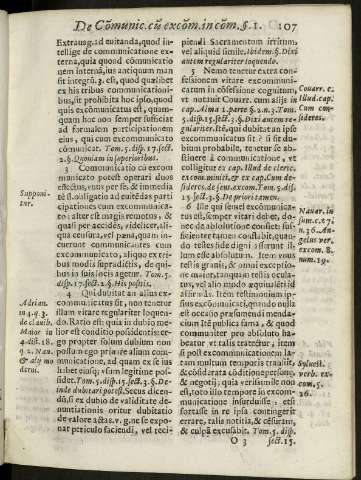 De Cõmunic. cũ excõm. in cõm. §. 1. 107
Extrauag. ad euitanda, quod in-
tellige de communicatione ex-
terna, quia quoad cõmunicatio
nem internã, ius antiquum man
sit integrũ. 3. est, quod quando
ex his tribus communicationi-
bus, sit prohibita hoc ipso, quod
quis excõmunicatus est, quam-
quam hoc non semper sufficiat
ad formalem participationem
eius, qui cum excommunicato
cõmunicat. Tom. 5. disp. 17. sect.
2. §. Quoniam in superioribus.
3 Communicatio cũ excom
municato potest operari duos
effectus, vnus per se, & immedia
tè s. obligatiõ ad euitãdas partes
communicationis cum excommunica
to: alter est magis remotus, &
quasi per accidẽs, videlicet, ali-
qua censura, vel pœna, quam in-
currunt communicantes cum
excommunicato, aliquo ex tri-
bus modis supradictis, de qui-
bus in suis locis agetur. Tom. 5.
disp. 17. sect. 2. §. His positis.
4 Qui dubitat an alius ex-
communicatus sit, non tenetur
illam vitare regulariter loquen-
do. Ratio est: quia in dubio me-
lior est conditio possidentis: er-
go propter solum dubium non
possumus priuare aliam com-
municatione, ad quam ex se ius
habet eiusq; vsum legitime pos-
sidet. Tom. 5. disp. 15. sect. 3. §. De-
inde dubitari potest. Secus dicen-
dũ, si ex dubio de validitate de-
nuntiationis oritur dubitatio
de valore actus. v. g. ne se expo-
nat periculo faciendi, vel reci-
piendi Sacramentum irritum,
vel aliquid simile. Ibidem §. Dixi
autem regulariter loquendo.
5 Nemo tenetur extra con-
fessionem vitare excommuni-
catum in cõfessione cognitum,
vt notauit Couarr. cum alijs in
cap. Alma 1. parte §. 2. n. 3. Tom.
5. disp. 15. sect. 3. §. Dixi autem re-
gulariter. Itẽ, qui dubitat an ipse
excommunicatus sit? si sit du-
bium probabile, tenetur se ab-
stinere à communicatione, vt
colligitur ex cap. Illud de cleric.
excom. ministr. & ex cap. Cum de-
sideres de sent. excom. Tom. 5. disp.
15. sect. 3. §. De priori tamen.
6 Ille qui semel excõmunica-
tus est, semper vitari debet, do-
nec de absolutione constet: suf-
ficienter autem constabit, quã-
do testes fide digni asserunt il-
lum esse absolutum. Item vnus
testis grauis, & omni exceptio-
ne maior, tanquam testis ocula-
tus, vel alio modo ex certa sciẽtia
affirmãs. Item testimonium ip-
sius excõmunicati, quando nulla
est occasio præsumendi menda-
cium. Itẽ publica fama, & quod
communiter pro absoluto ha-
beatur vt talis tractetur, item
si post excommunicationem la-
tam multum temporis transijt,
& cõsiderata cõditione personæ,
& negotij; quia verisimile non
est, toto illo tempore in excom-
municatione insorduisse: & si
fortasse in re ipsa contingerit
errare, talis notitia, & cẽsuram,
& culpã excusabit. Tom. 5. disp.
O 3 sect. 15.
Supponi-
tur.
Adrian.
in 4. q. 3.
de clauib.
Maior in
4. dist. 18.
q. 2. Nau.
& alij mo
derni.
Couarr. c.
Illud. cap.
Cum con-
sideres.
Nauar. in
sum. c. 27.
n. 36. An-
gelus ver.
excom. 8.
num. 19.
Syluest.
verb. ex-
com. 5.
26.